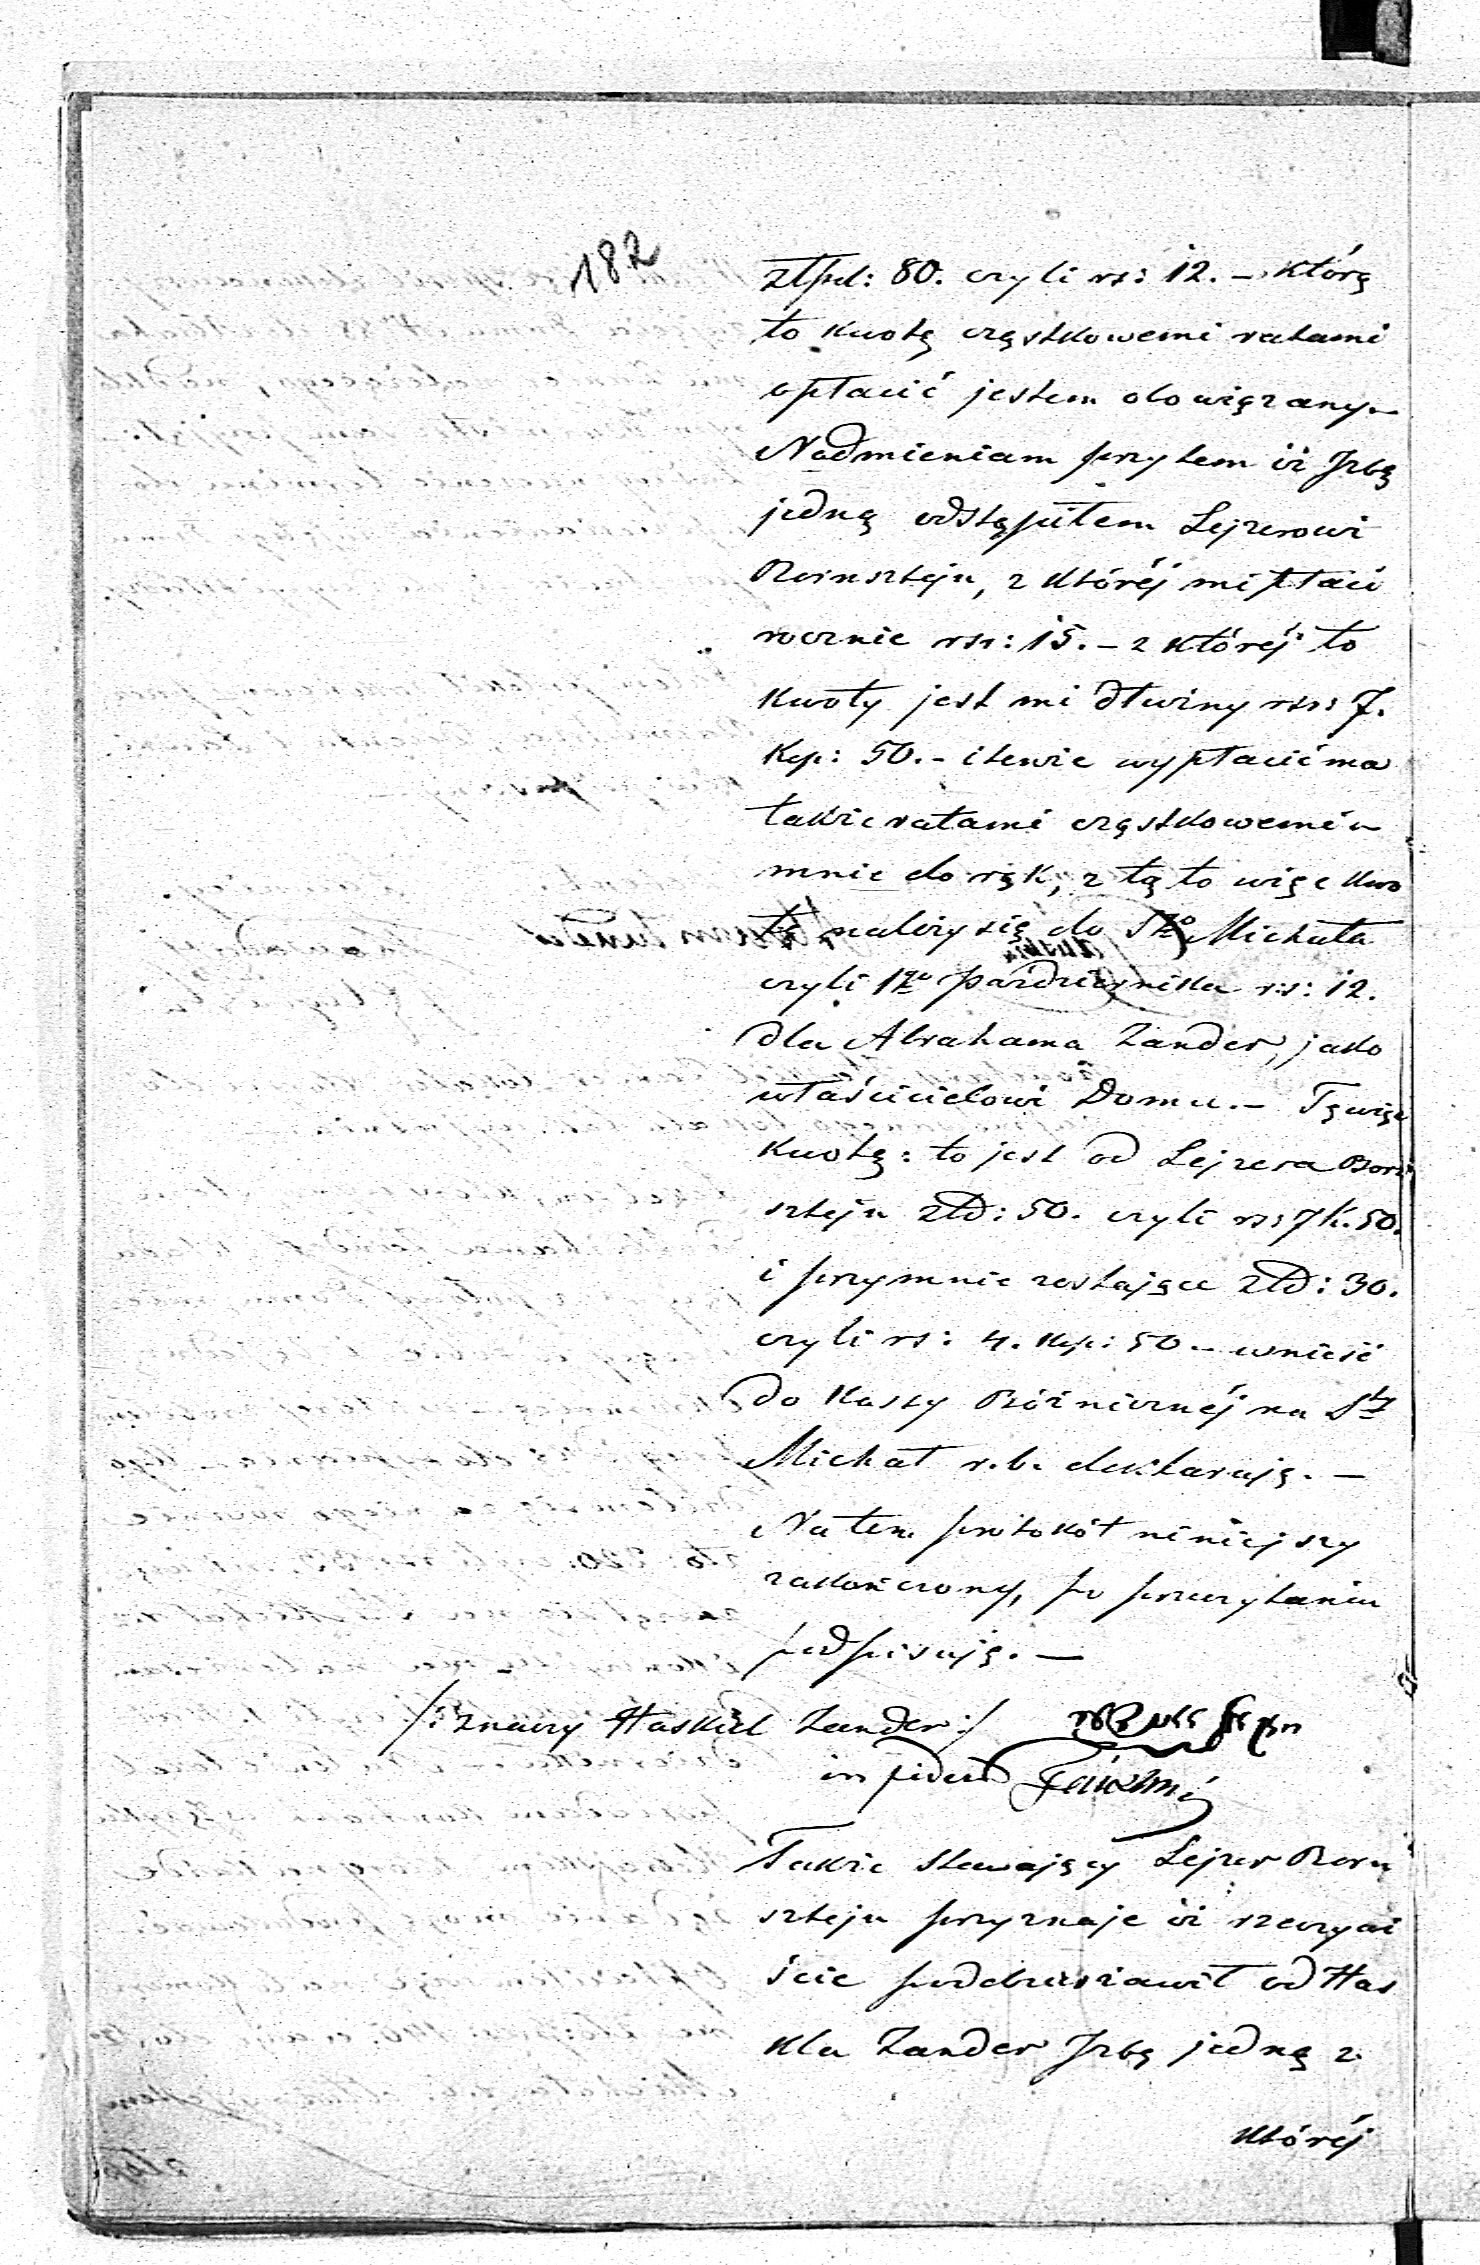 182
złpol: 80. czyli rs: 12. – którą
to kwotę cząstkowemi ratami
opłacić jestem obowiązany.
Nadmieniam przytem iż Jzbę
jedną odstąpiłem Lejzerowi
Bornsztejn, z któréj mi płaci
rocznie rsr: 15. – z któréj to
kwoty jest mi dłużny rsr: 7.
kop: 50. – i tenże wypłacić ma
także ratami cząstkowemi
mnie do rąk, z tą to więc kwo
tą należy się do Sgo Michała
czyli 1go Października rs: 12.
dla Abrahama Zander, jako
właścicielowi Domu. – Tę więc
kwotę: to jest od Lejzera Born
sztejn złp: 50. czyli rs: 7 k. 50.
i przy mnie zostające złp: 30.
czyli rs: 4. kop: 50 – wnieść
do Kassy Bóżnicznéj na Sty
Michał r. b. deklaruję. –
Na tem protokół niniejszy
zakończony, po przeczytaniu
podpisuję. –
/: znaczy Haskiel Zander :/
in fidem
Także stawający Lejzer Born
sztejn przyznaje iż rzeczywi
ście poddzierżawił od Has
kla Zander Jzbę jedną z
któréj